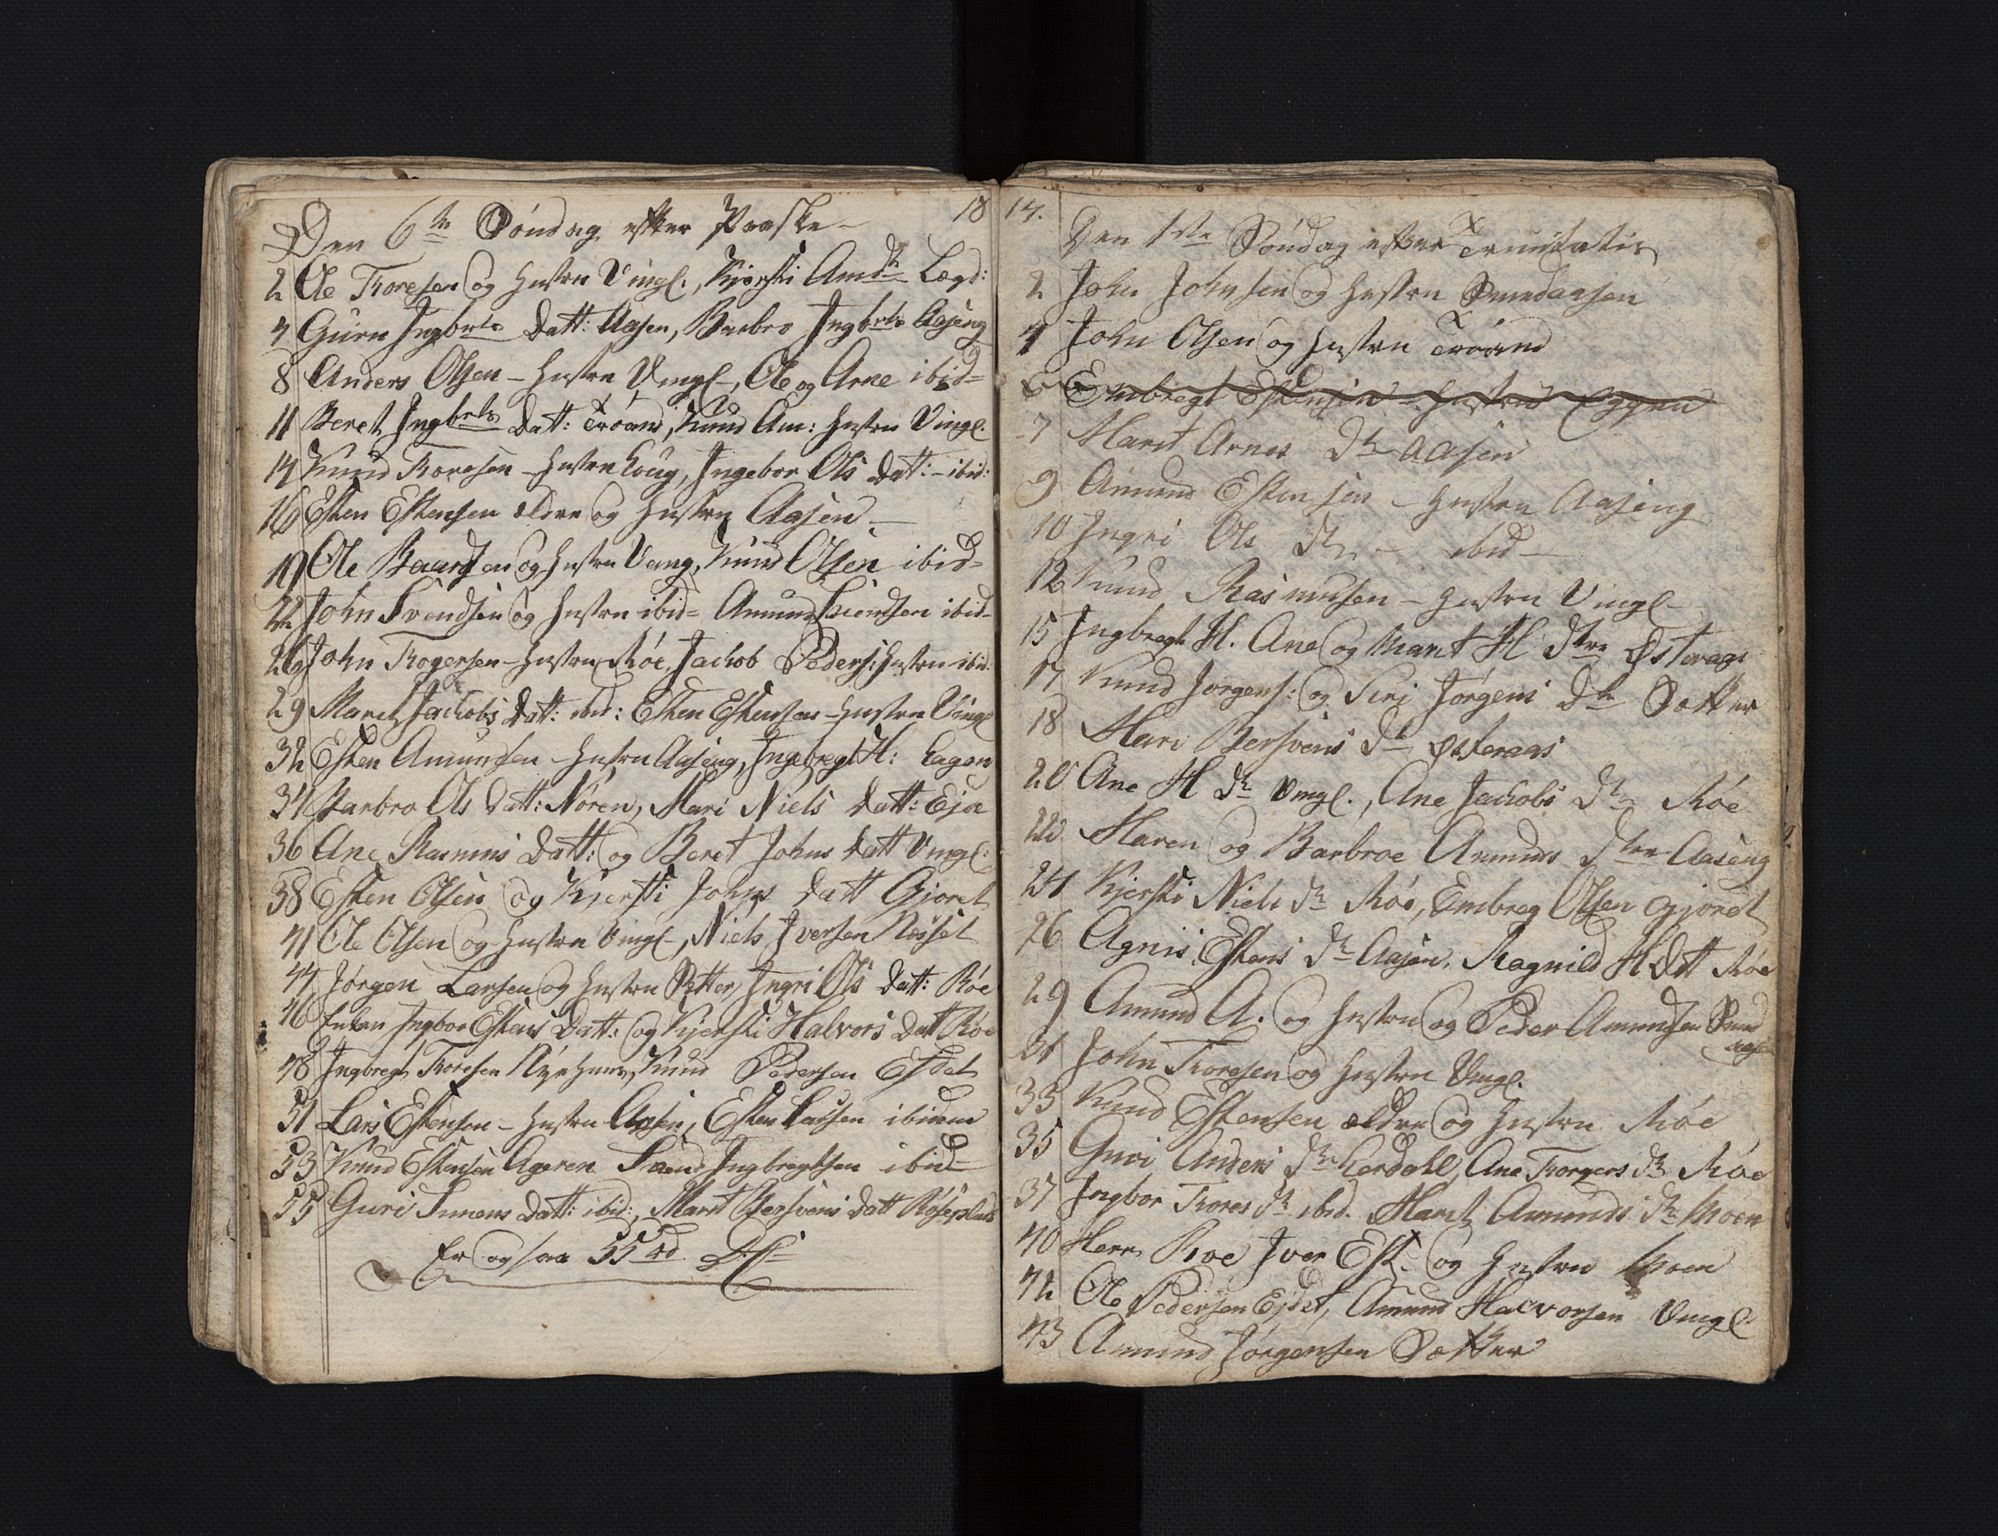 Den 6te Söndag efter Paaske 18
2 Ole Toresen og Hustru Vingl., Kjersti Amdr Lægd:
4 Guru Ingbrts Datt: Aasen, Barbro Ingbrts Aaseng
8 Anders Olsen – Hustru Vingl –, Ole og Arne ibid=
11 Beret Ingbrts Datt: Tröand, Knud Am: Hustru Vingl.
14 Knud Toresen – Hustru Houg, Ingebor Ols Datt: – ibid:
16 Esten Estensen ældre og Hustru Aasen –
19 Ole Baardsen og Hustru Vang, Knud Olsen ibid=
22 John Svendsen og Hustru ibid= Amund Svendsen ibid=
26 John Torgersen – Hustru Röe, Jachob Peders: Hustru ibid:
29 Marit Jachobs Datt: ibid: Esten Estensen – Hustru Vingl
32 Esten Amundsen – Hustru Aaseng, Ingebregt H: Hagen
34 Barbro Ols Datt: Nören, Mari Niels Datt: Eja
36 Ane Rasmus Datt: og Beret Johns Datt Vingl:
38 Esten Olsen og Kjersti Johns Datt Gjoret
41 Ole Olsen og Hustru Vingl –, Niels Iversen Nesset
44 Jörgen Larsen og Hustru Sætter, Ingri Ols Datt: Röe
46 Ingbor Estens Datt: og Kjersti Halvors Datt Röe
48 Ingbregt Toresen Knud Pedersen Ejdet
51 Lars Estensen – Hustru Aasen, Esten Larsen ibidem
53 Knud Estensen Ageren Svend Ingbregtsen ibid=
55 Guri Simens Datt: ibid:, Marit Bersvens Datt Röseplads
Er og saa 55
14. Den 1ste Söndag efter Trinitatis
2 John Johnsen og Hustru Sundaasen
4 John Olsen og Hustru Tröand
6 Embregt Estensen – Hustru Eggen
7 Marit Arnes Dr Aasen
9 Amund Estensen – Hustru Aaseng
10 Ingri Ols Dr – ibid –
12 Knud Rasmusen – Hustru Vingl –
15 Ingbregt H. Ane og Marit H Dtre Østeraas
17 Knud Jorgens: og Siri Jörgens Dr Sætter
18 Mari Bersvens Dr Østeraas
20 Ane H Dr Vingl., Ane Jachobs Dr Röe
22 Maren og Barbroe Amunds Dtre Aaseng
24 Kjersti Niels Dr Röe, Embreg Olsen Gjoret
26 Agnis Estens Dr Aasen, Ragnild H Datt Röe
29 Amund A. og Hustru og Peder Amundsen Sund
aasen
31 John Toresen og Hustru Vingl.
33 Knud Estensen ældre og Hustru Röe
35 Guri Anders Dr Lerdahl, Ane Torgers Dr Röe
37 Ingbor Tores Dr ibid. Marit Amunds Dr Moen
40 Herr Roe Iver Est. og Hustru Moen
42 Ole Pedersen Ejdet, Amund Halvorsen Vingl:
43 Amund Jörgensen Sætter